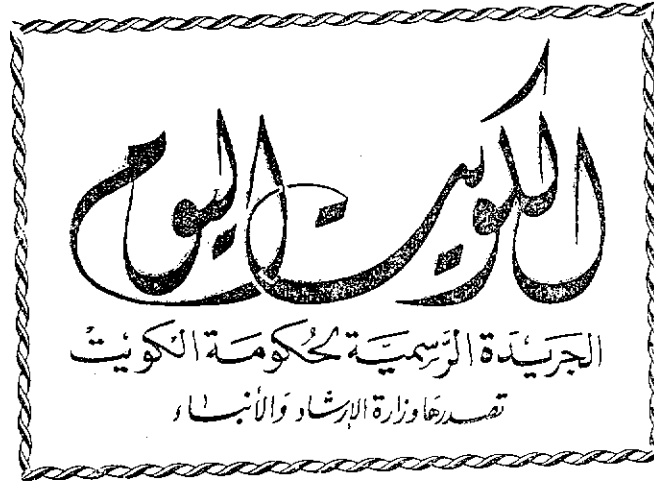 الكويت اليوم
الجَريدَة الرَّسميَّة لحُكومَة الكوَيتْ
تصدرهَا وزارة الإرشاد وَالأنبَاء